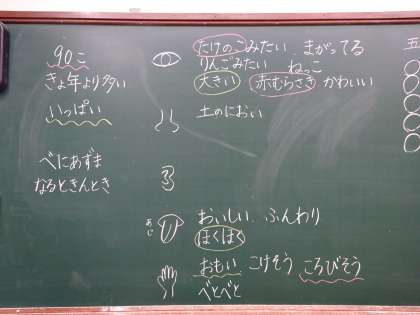 90こ
きょ年より多い
いっぱい
べにあずま
なるときんとき
たけのこみたい、まがってる
りんごみたい ねっこ
大きい 赤むらさき かわいい
土のにおい
あじ
おいしい、ふんわり
ほくほく
おもい こけそう ころびそう
べとべと
五